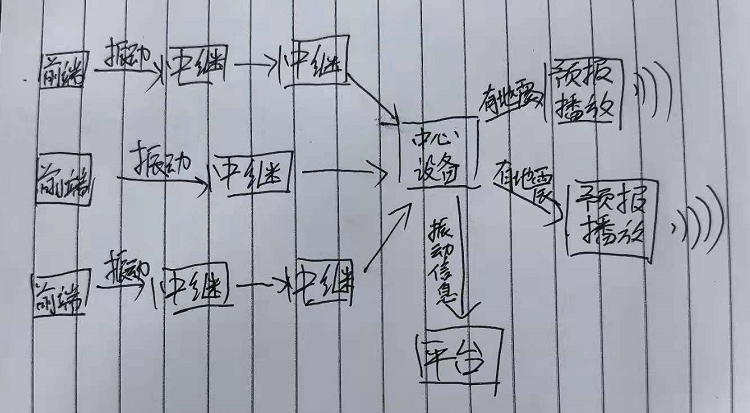 前端
振动
中继
中继
前端
振动
中继
前端
振动
中继
中继
中心
设备
有地震
预报
播放
有地震
预报
播放
振动信息
平台